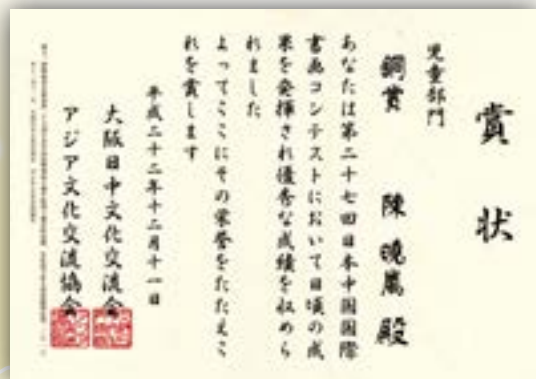 賞状
児童部門
銅賞 陳曉萬殿
あなたは第二十七回日本中国国際
書画コンテストにおいて日頃の成
果を発揮され優秀な成績を収めら
れました
よってここにその栄誉をたたえこ
れを賞します
平成二十二年十二月十一日
大阪日中文化交流会
アジア文化交流協会